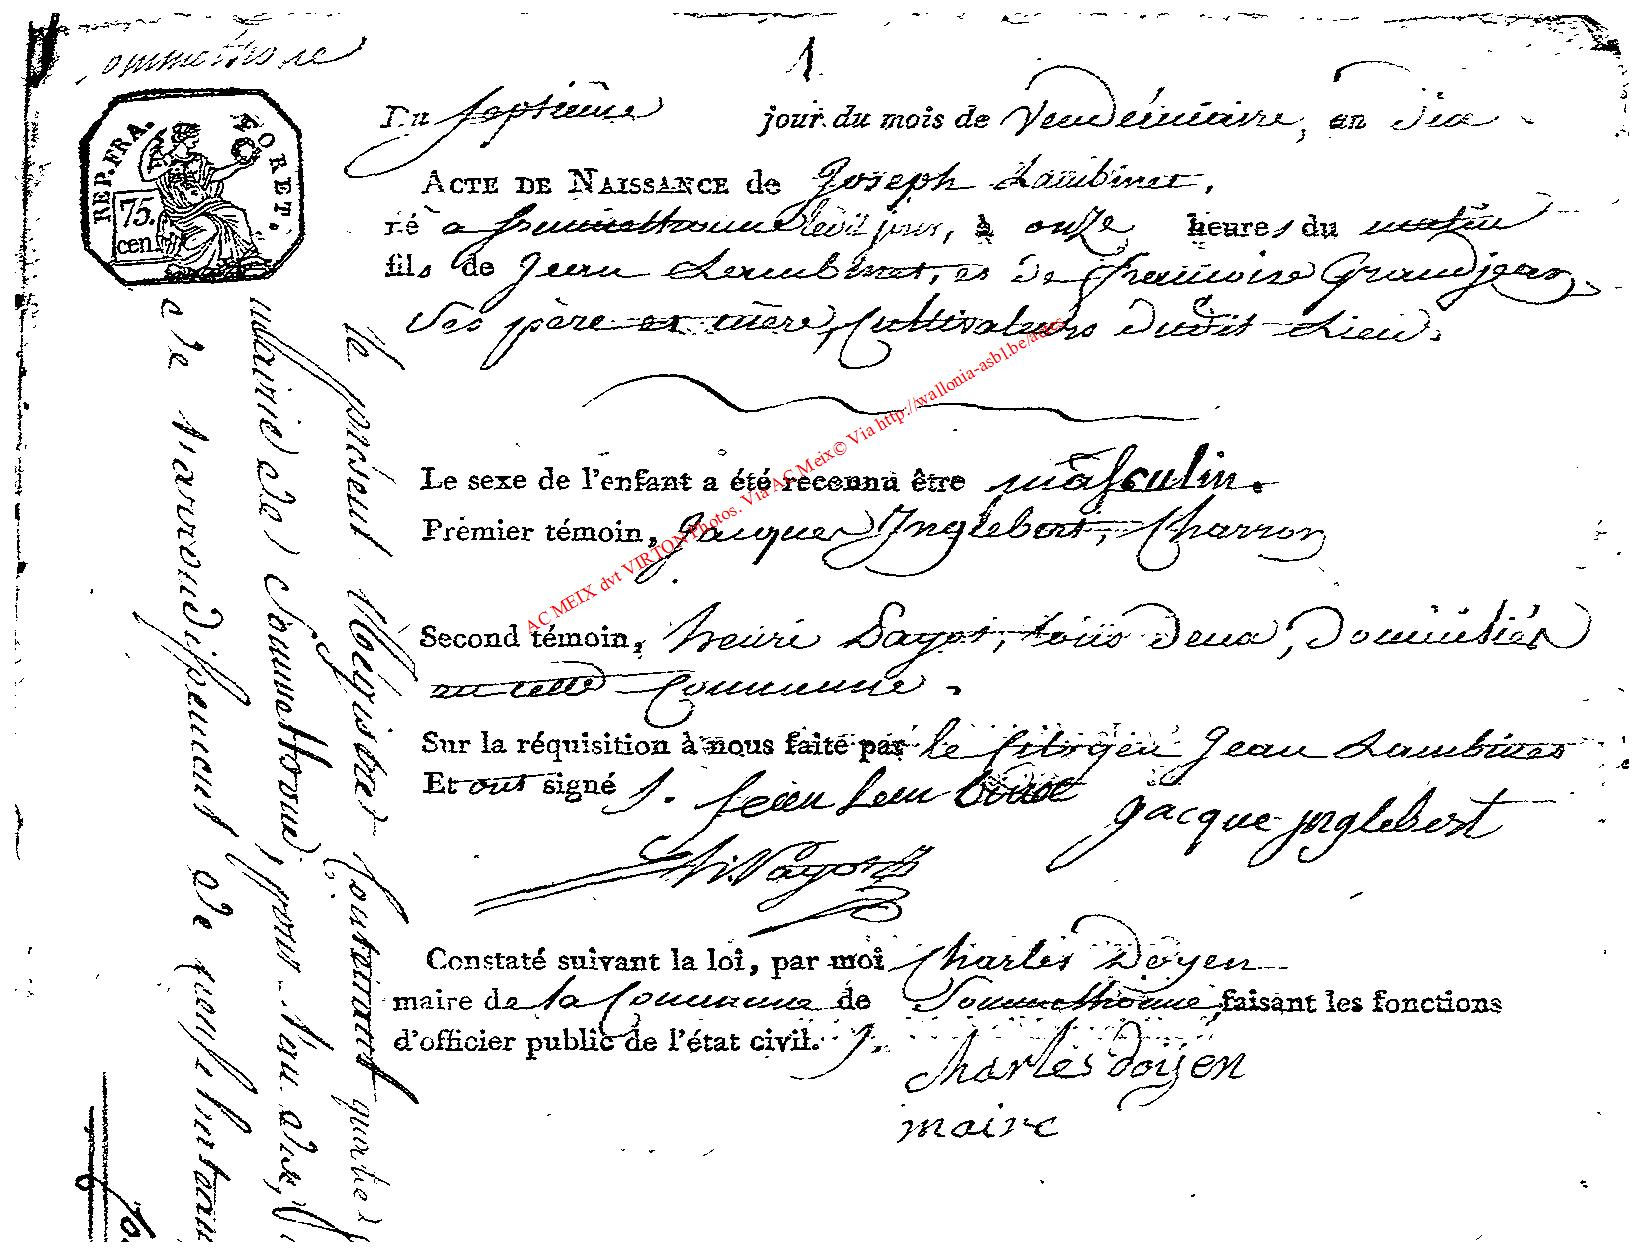 ommethone
1
Du septième jour du mois de Vendémiaire, an dix
ACTE DE NAISSANCE de Joseph Lambinet,
né à Sommethonne ledit jour, à onze heures du matin
fils de Jean Lambinet, et de françoise Grandjean,
Ses père et mère, Cultivateurs dudit Lieu.
Le sexe de l'enfant a été reconnu être masculin.
Premier témoin, Jacques Inglebert, Charron
Second témoin, henri Payot, tous deux, domiciliés
en cette Commune.
Sur la réquisition à nous faite par le Citoyen Jean Lambinet
Et ont signé
jean lam binet
jacque jnglebert
h. Payot
Constaté suivant la loi, par moi Charles Doyen
maire de la Commune de Sommethonne, faisant les fonctions
d'officier public de l'état civil.
charles doyen
maire
REP. FRA.
FORET.
75.
cen.
le présent Régistre Contenant
mairie de Sommethonne, pour l'an dix,
de l'arrondissement de
AC MEIX dvt VIRTON Photos. Via AC Meix© Via http://wallonia-asbl.be/actes